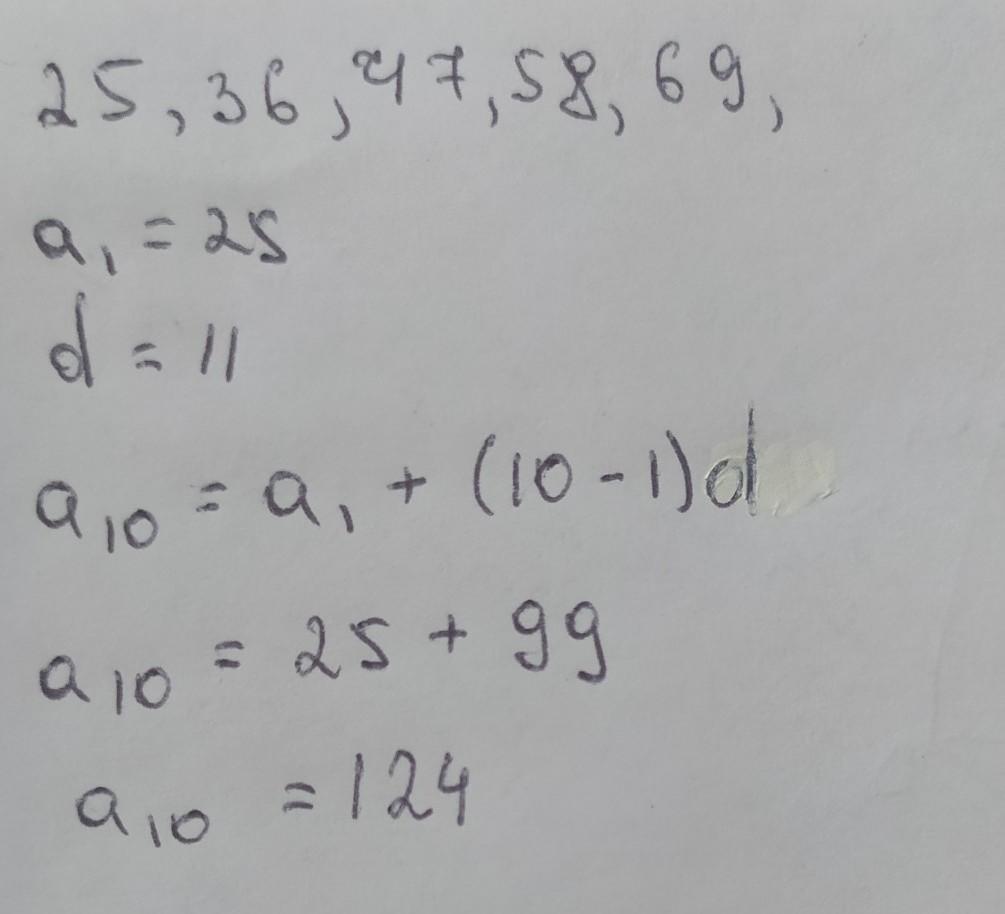 25, 36, 47, 58, 69,
a₁ = 25
d = 11
a₁₀ = a₁ + (10 - 1)d
a₁₀ = 25 + 99
a₁₀ = 124